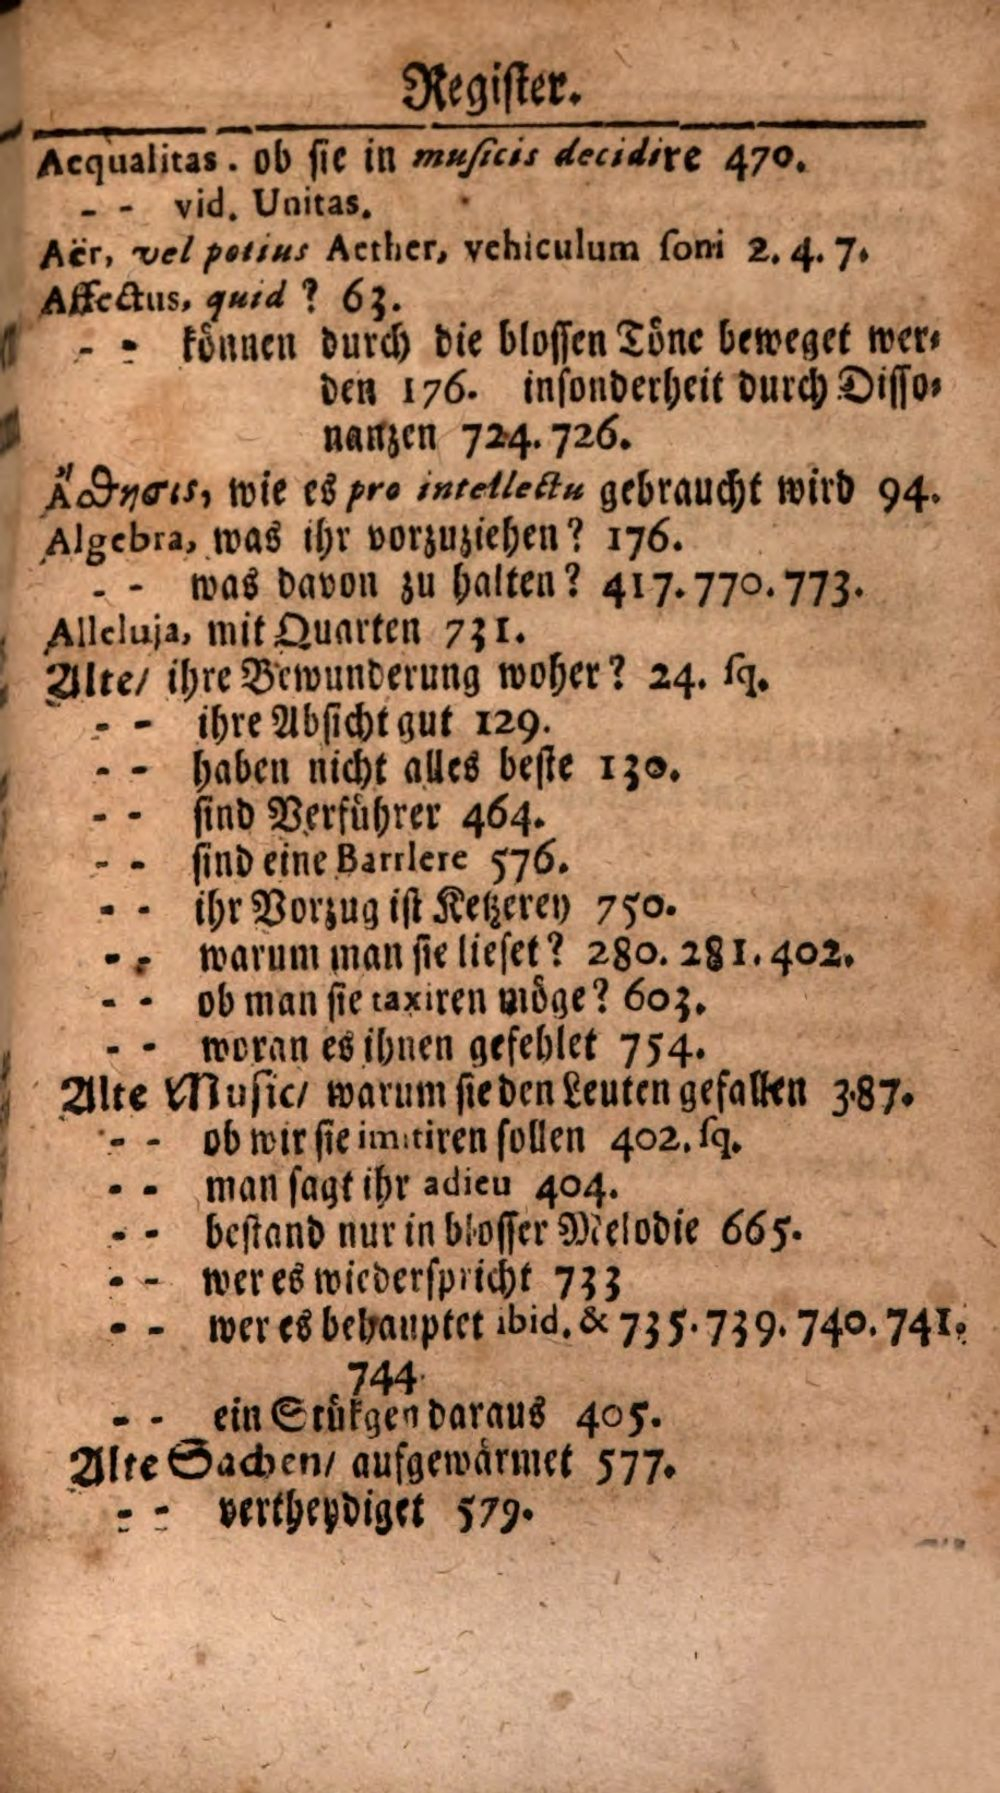 Register.
Aequalitas. ob sie in musicis decidire 470.
- - vid. Unitas.
Aër, vel potius Aether, vehiculum soni 2. 4. 7.
Affectus, quid? 63.
- - können durch die blossen Töne beweget wer-
den 176. insonderheit durch Disso-
nanzen 724. 726.
Ἄισθησις, wie es pro intellectu gebraucht wird 94.
Algebra, was ihr vorzuziehen? 176.
- - was davon zu halten? 417. 770. 773.
Alleluja, mit Quarten 731.
Alte/ ihre Bewunderung woher? 24. sq.
- - ihre Absicht gut 129.
- - haben nicht alles beste 130.
- - sind Verführer 464.
- - sind eine Barriere 576.
- - ihr Vorzug ist Ketzerey 750.
- - warum man sie lieset? 280. 281. 402.
- - ob man sie taxiren möge? 603.
- - woran es ihnen gefehlet 754.
Alte Music/ warum sie den Leuten gefallen 387.
- - ob wir sie imitiren sollen 402. sq.
- - man sagt ihr adieu 404.
- - bestand nur in blosser Melodie 665.
- - wer es wiederspricht 733
- - wer es behauptet ibid. & 735. 739. 740. 741.
744.
- - ein Stükgen daraus 405.
Alte Sachen/ aufgewärmet 577.
- - vertheydiget 579.